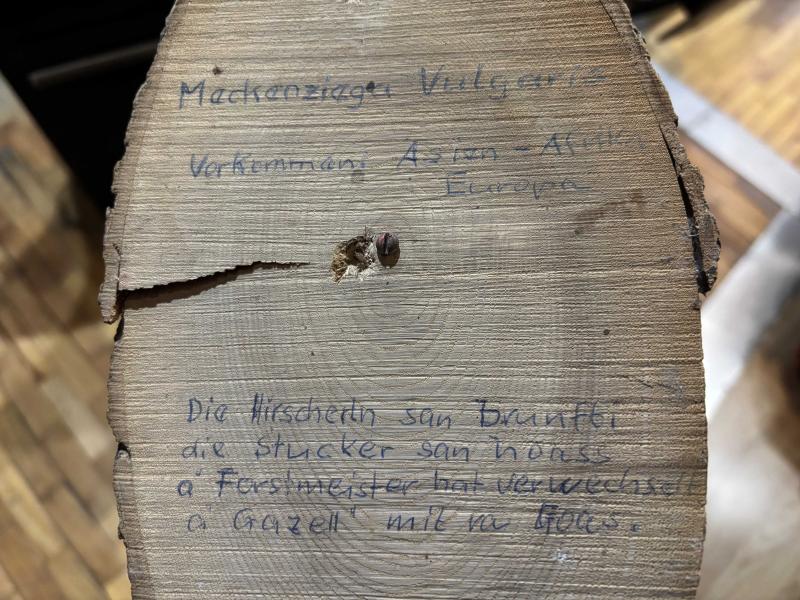 Meckenziega Vulgaris
Vorkommani Asien - Afrika
Europa
Die Hirscherln san brunfti
die Stucker san hoass
a Forstmeister hat verwechselt
a Gazell" mit ra Goas.